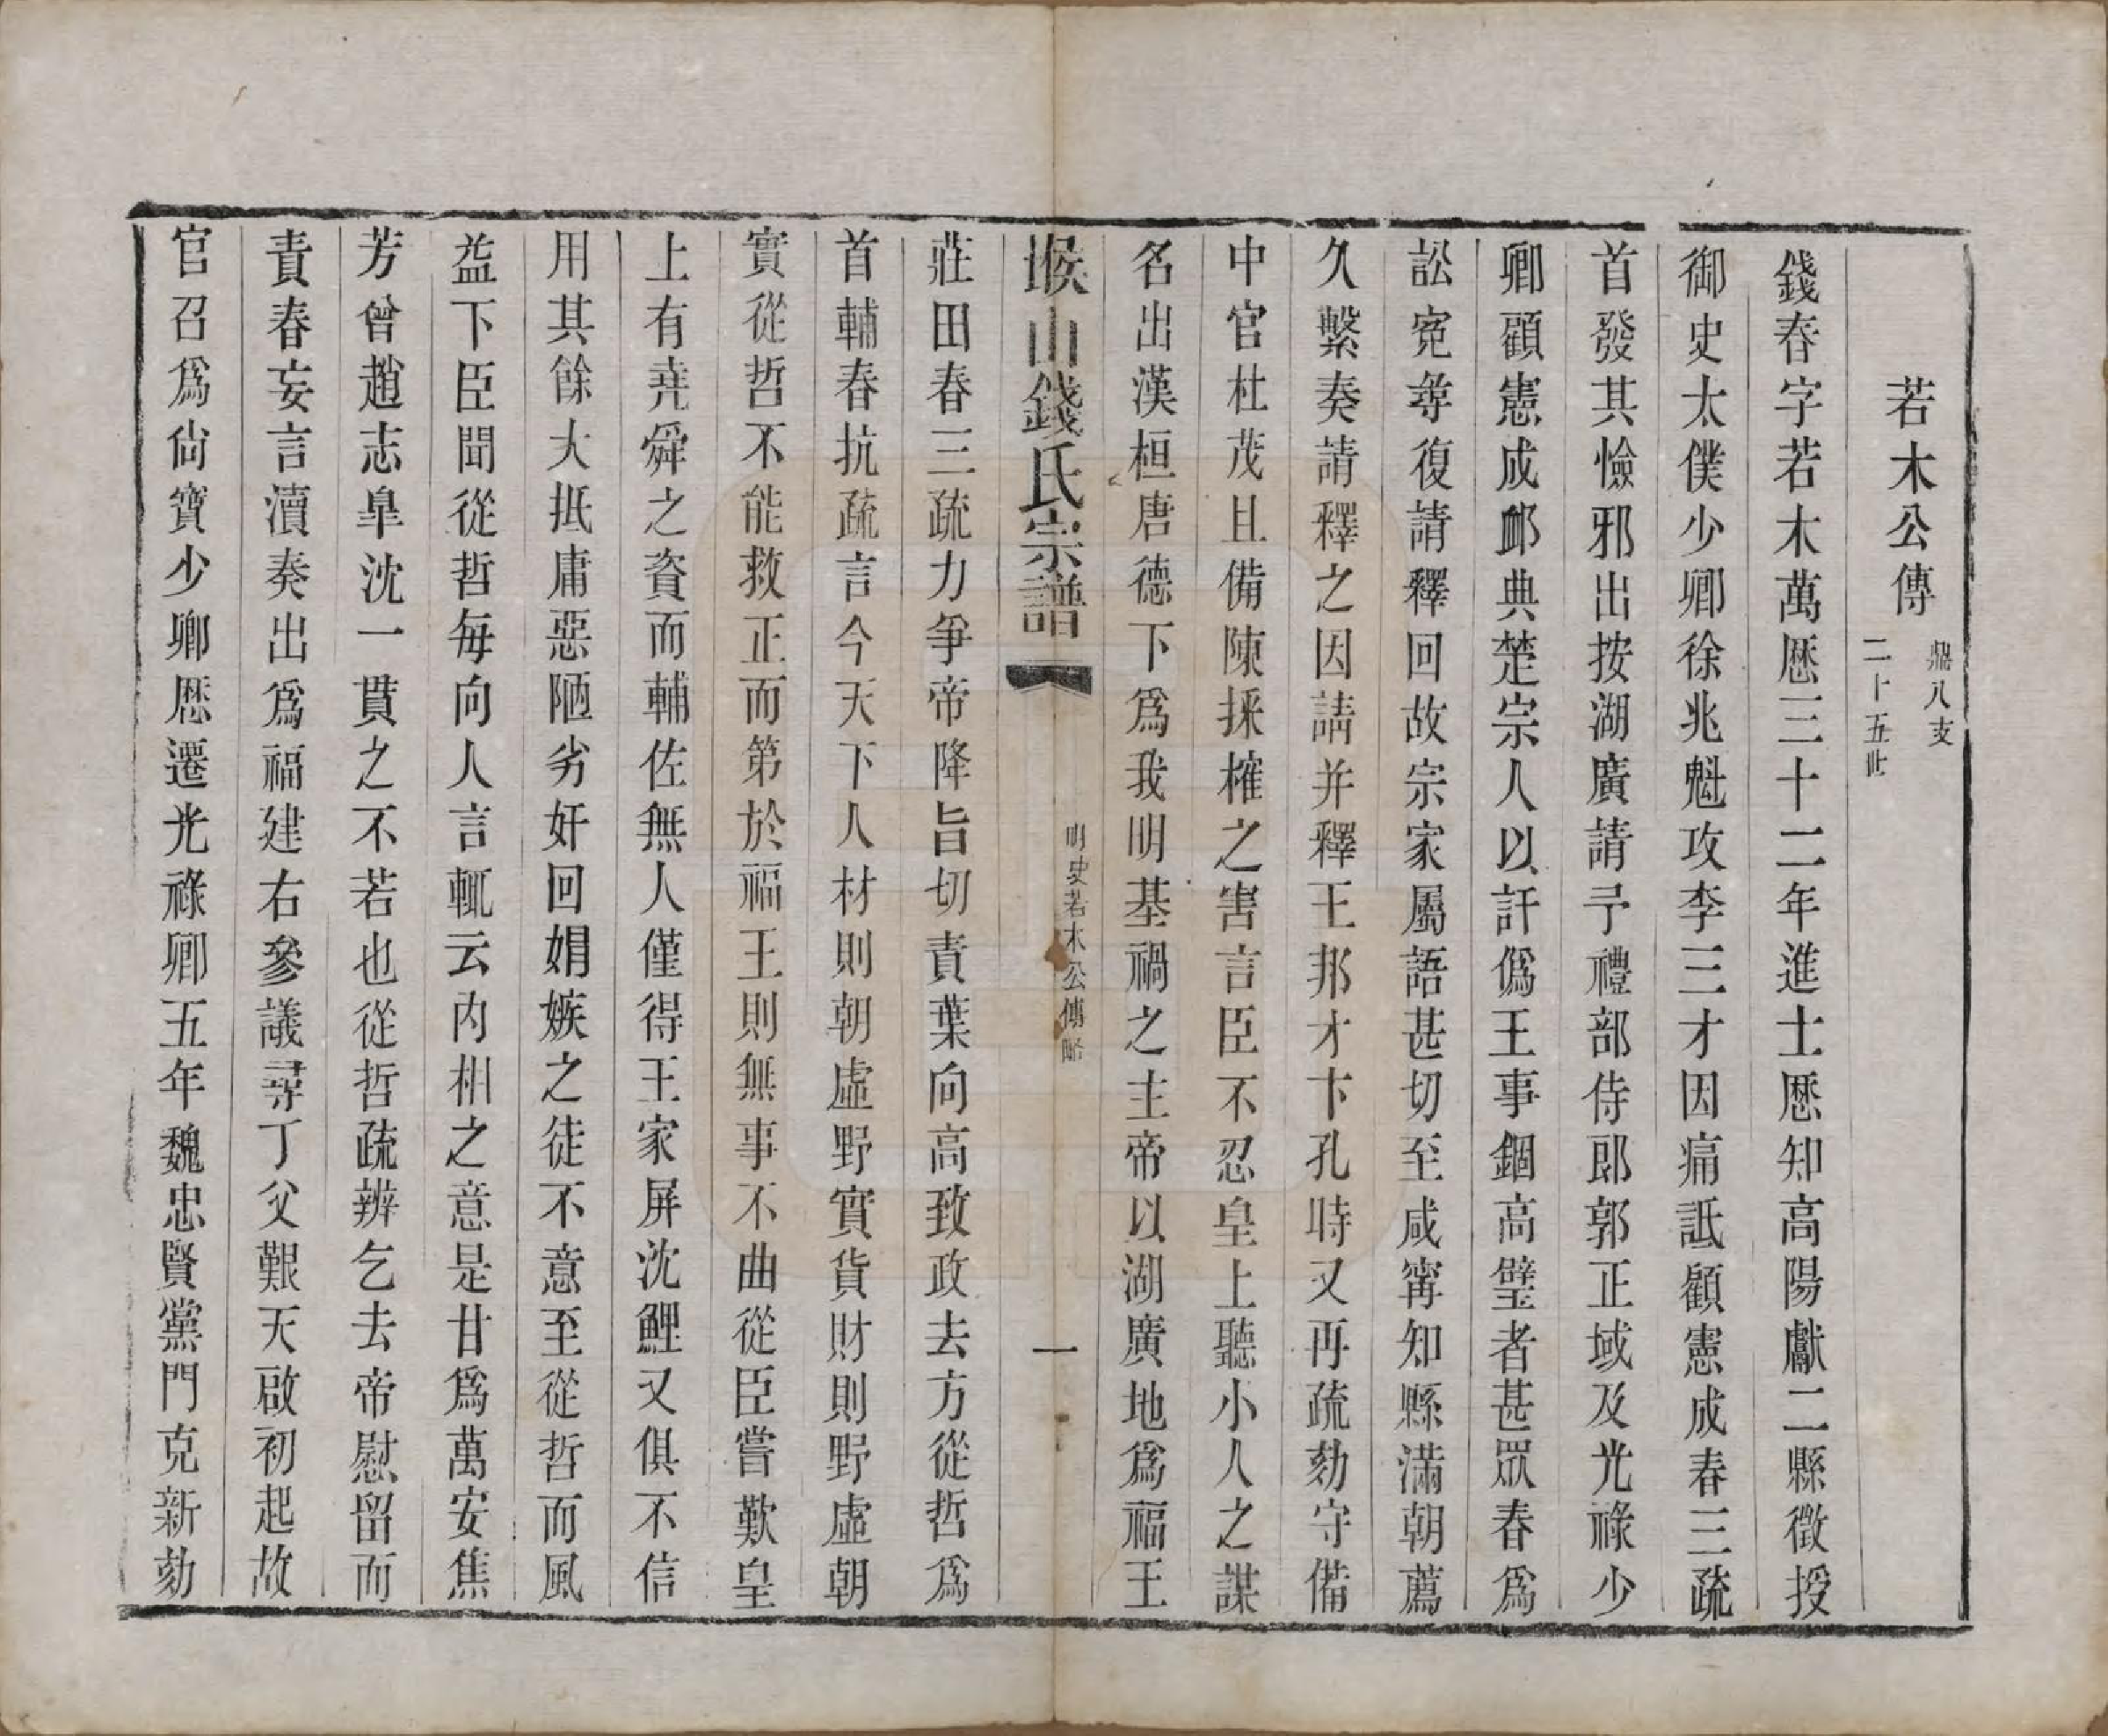 若木公傳 鼎八支
二十五世
錢春字若木萬厯三十二年進士厯知高陽獻二縣徵授
御史太僕少卿徐兆魁攻李三才因痛詆顧憲成春三疏
首發其憸邪出按湖廣請予禮部侍郎郭正域及光祿少
卿顧憲成卹典楚宗人以訐僞王事錮高墜者甚眾春爲
訟寃尋復請釋回故宗家屬語甚切至咸甯知縣滿朝薦
久繫奏請釋之因請并釋王邦才卞孔時又再疏劾守備
中官杜茂且備陳採榷之害言臣不忍皇上聽小人之謀
名出漢桓唐德下爲我明基禍之主帝以湖廣地爲福王
堠山錢氏宗譜 明史若木公傳略 一
莊田春三疏力爭帝降旨切責葉向高致政去方從哲爲
首輔春抗疏言今天下人材則朝虛野實貨財則野虛朝
實從哲不能救正而第於福王則無事不曲從臣嘗歎皇
上有堯舜之資而輔佐無人僅得王家屏沈鯉又俱不信
用其餘大抵庸惡陋劣奸回娟嫉之徒不意至從哲而風
益下臣聞從哲每向人言輒云内相之意是甘爲萬安焦
芳曾趙志臯沈一貫之不若也從哲疏辨乞去帝慰留而
責春妄言瀆奏出爲福建右參議尋丁父艱天啟初起故
官召爲尙寶少卿厯遷光祿卿五年魏忠賢黨門克新劾